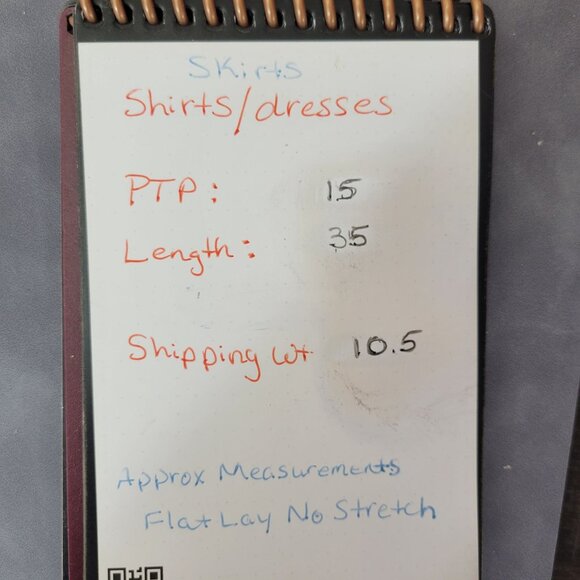 Skirts
Shirts/dresses
PTP: 15
Length: 35
Shipping Wt 10.5
Approx Measurements
Flat Lay No Stretch